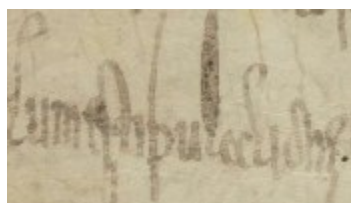 cum stipulacione.